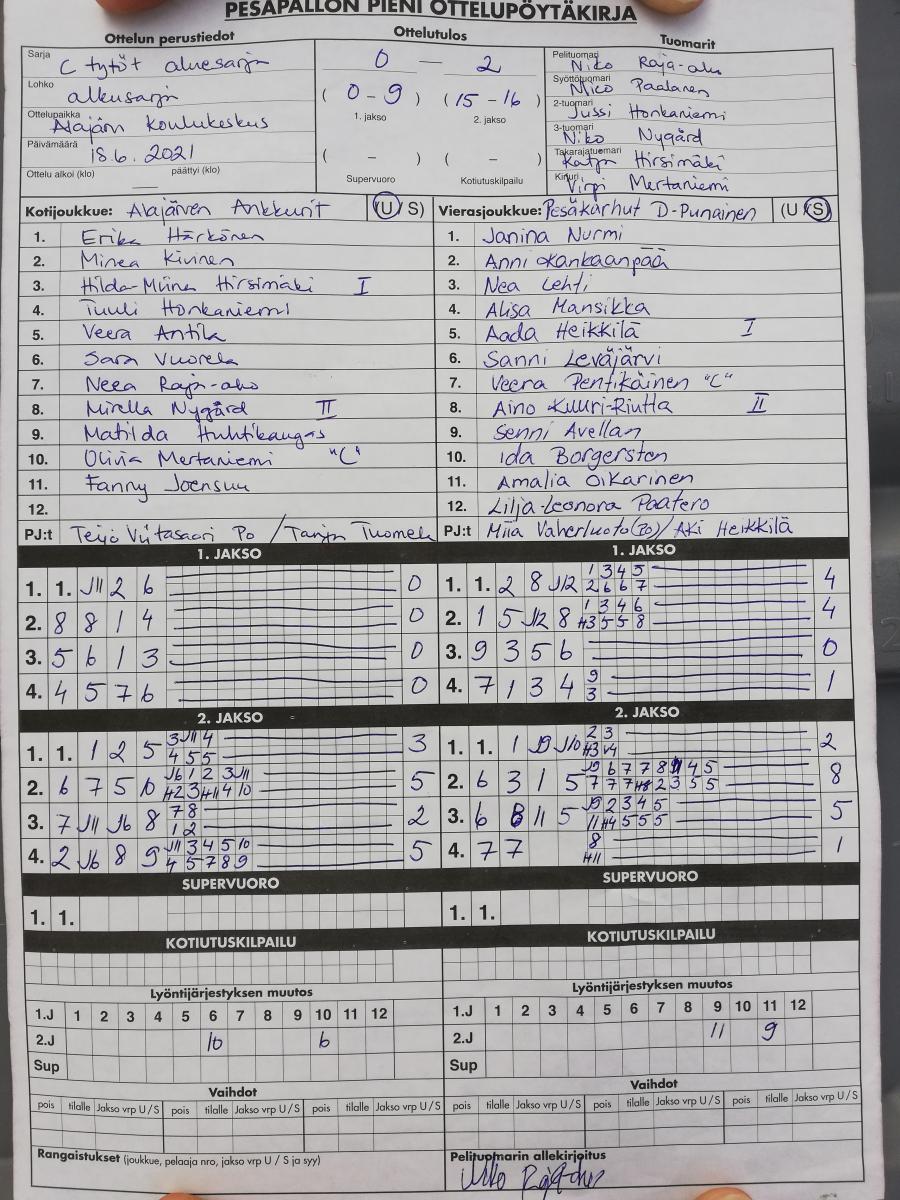 PESÄPALLON PIENI OTTELUPÖYTÄKIRJA
Ottelun perustiedot
Sarja C tytöt aluesarja
Lohko alkusarja
Ottelupaikka Alajärvi koulukeskus
Päivämäärä 18.6. 2021
Ottelu alkoi (klo) päättyi (klo)
Ottelutulos
0 – 2
(0-9) (15-16)
1. jakso 2. jakso
( – ) ( – )
Supervuoro Kotiutuskilpailu
Tuomarit
Pelituomari Niko Raja-aho
Syöttötuomari Mico Paalanen
2-tuomari Jussi Honkaniemi
3-tuomari Niko Nygård
Takarajatuomari Katja Hirsimäki
Kirjuri Virpi Mertaniemi
Kotijoukkue: Alajärven Ankkurit (U/S)
1. Erika Härkönen
2. Minea Kivinen
3. Hilda-Miina Hirsimäki I
4. Tuuli Honkaniemi
5. Veera Antila
6. Sara Vuorela
7. Neea Raja-aho
8. Mirella Nygård II
9. Matilda Huhtikangas
10. Olivia Mertaniemi "C"
11. Fanny Joensuu
12.
PJ:t Teijo Viitasaari Po / Tanja Tuomela
Vierasjoukkue: Pesäkarhut D-Punainen (U/S)
1. Janina Nurmi
2. Anni Kankaanpää
3. Nea Lehti
4. Alisa Mansikka
5. Aada Heikkilä I
6. Sanni Leväjärvi
7. Veera Pentikäinen "C"
8. Aino Kuuri-Riutta II
9. Senni Avellan
10. Ida Borgersten
11. Amalia Oikarinen
12. Lilja-Leonora Paatero
PJ:t Miia Vaherluoto(Po)/Aki Heikkilä
1. JAKSO
1. 1. J11 2 6 0
2. 8 8 1 4 0
3. 5 6 1 3 0
4. 4 5 7 6 0
1. JAKSO
1 3 4 5
1. 1. 2 8 J12 2 6 6 7 4
1 3 4 6
2. 1 5 J12 8 H3 5 5 8 4
3. 9 3 5 6 0
9
4. 7 1 3 4 3 1
2. JAKSO
3 J11 4
1. 1. 1 2 5 4 5 5 3
J6 1 2 3 J11
2. 6 7 5 10 H2 3 H11 4 10 5
7 8
3. 7 J11 J6 8 1 2 2
J11 3 4 5 10
4. 2 J6 8 9 4 5 7 8 9 5
2. JAKSO
2 3
1. 1. 1 J9 J10 H3 V4 2
J9 6 7 7 8 11 4 5
2. 6 3 1 5 7 7 7 H8 2 3 5 5 8
J9 2 3 4 5
3. 6 8 11 5 11 H4 5 5 5 5
8
4. 7 7 H11 1
SUPERVUORO
1. 1.
SUPERVUORO
1. 1.
KOTIUTUSKILPAILU
KOTIUTUSKILPAILU
Lyöntijärjestyksen muutos
1.J 1 2 3 4 5 6 7 8 9 10 11 12
2.J 10 6
Sup
Lyöntijärjestyksen muutos
1.J 1 2 3 4 5 6 7 8 9 10 11 12
2.J 11 9
Sup
Vaihdot
pois tilalle Jakso vrp U/S pois tilalle Jakso vrp U/S pois tilalle Jakso vrp U/S
Vaihdot
pois tilalle Jakso vrp U/S pois tilalle Jakso vrp U/S pois tilalle Jakso vrp U/S
Rangaistukset (joukkue, pelaaja nro, jakso vrp U / S ja syy)
Pelituomarin allekirjoitus
Niko Raja-aho